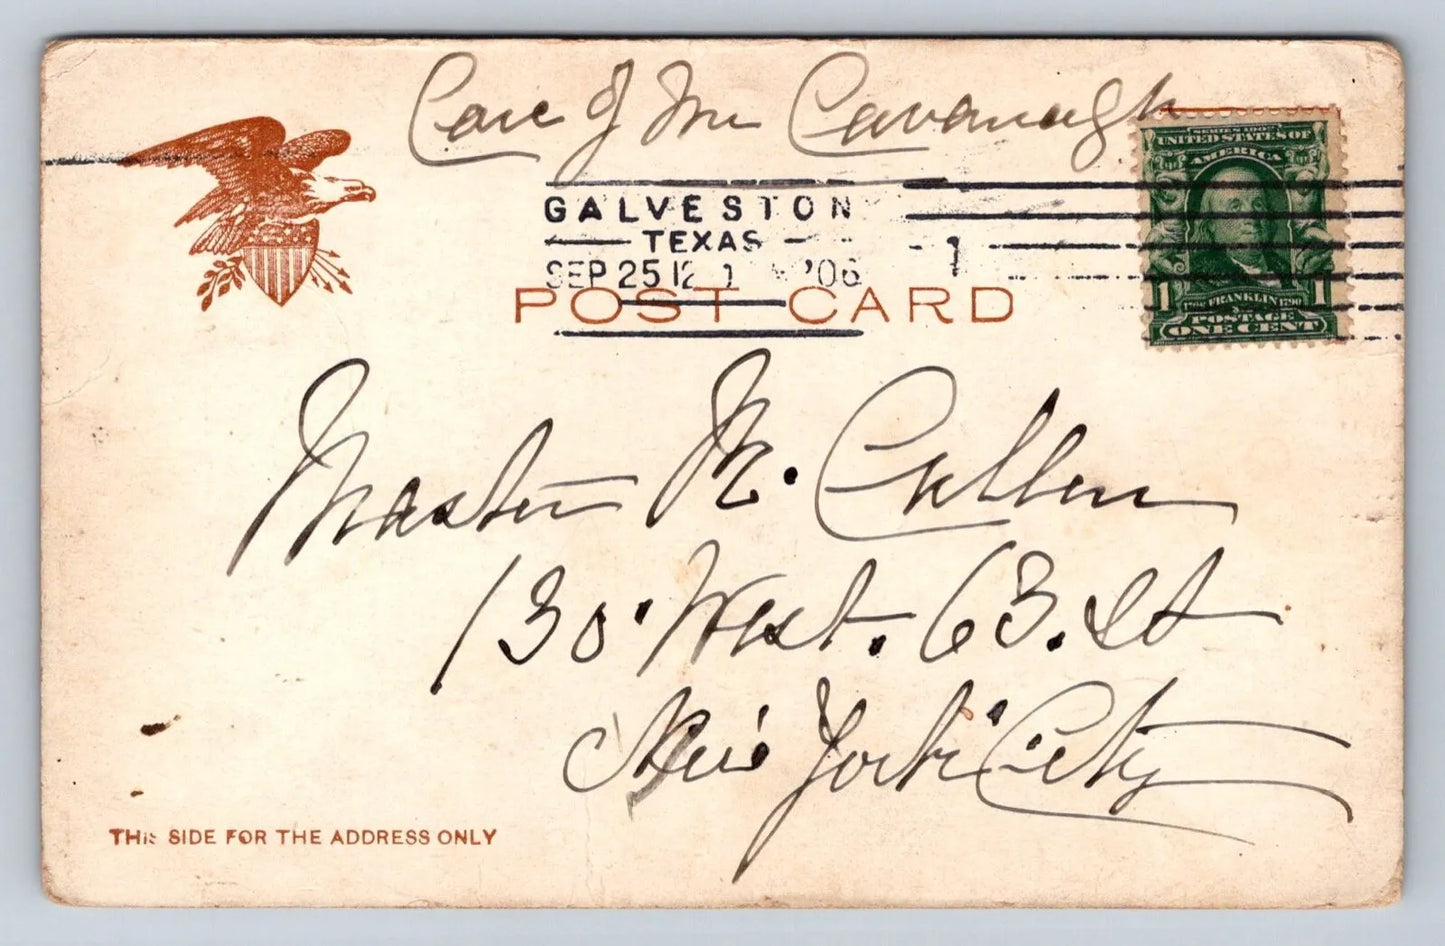 Care of Mr Cavanagh
GALVESTON
TEXAS
SEP 25 12 '06
1
POST CARD
SERIES 1902
UNITED STATES OF
AMERICA
1 1706 FRANKLIN 1790 1
POSTAGE
ONE CENT
Master M. Cullen
130 West. 63. St
New York City
THIS SIDE FOR THE ADDRESS ONLY